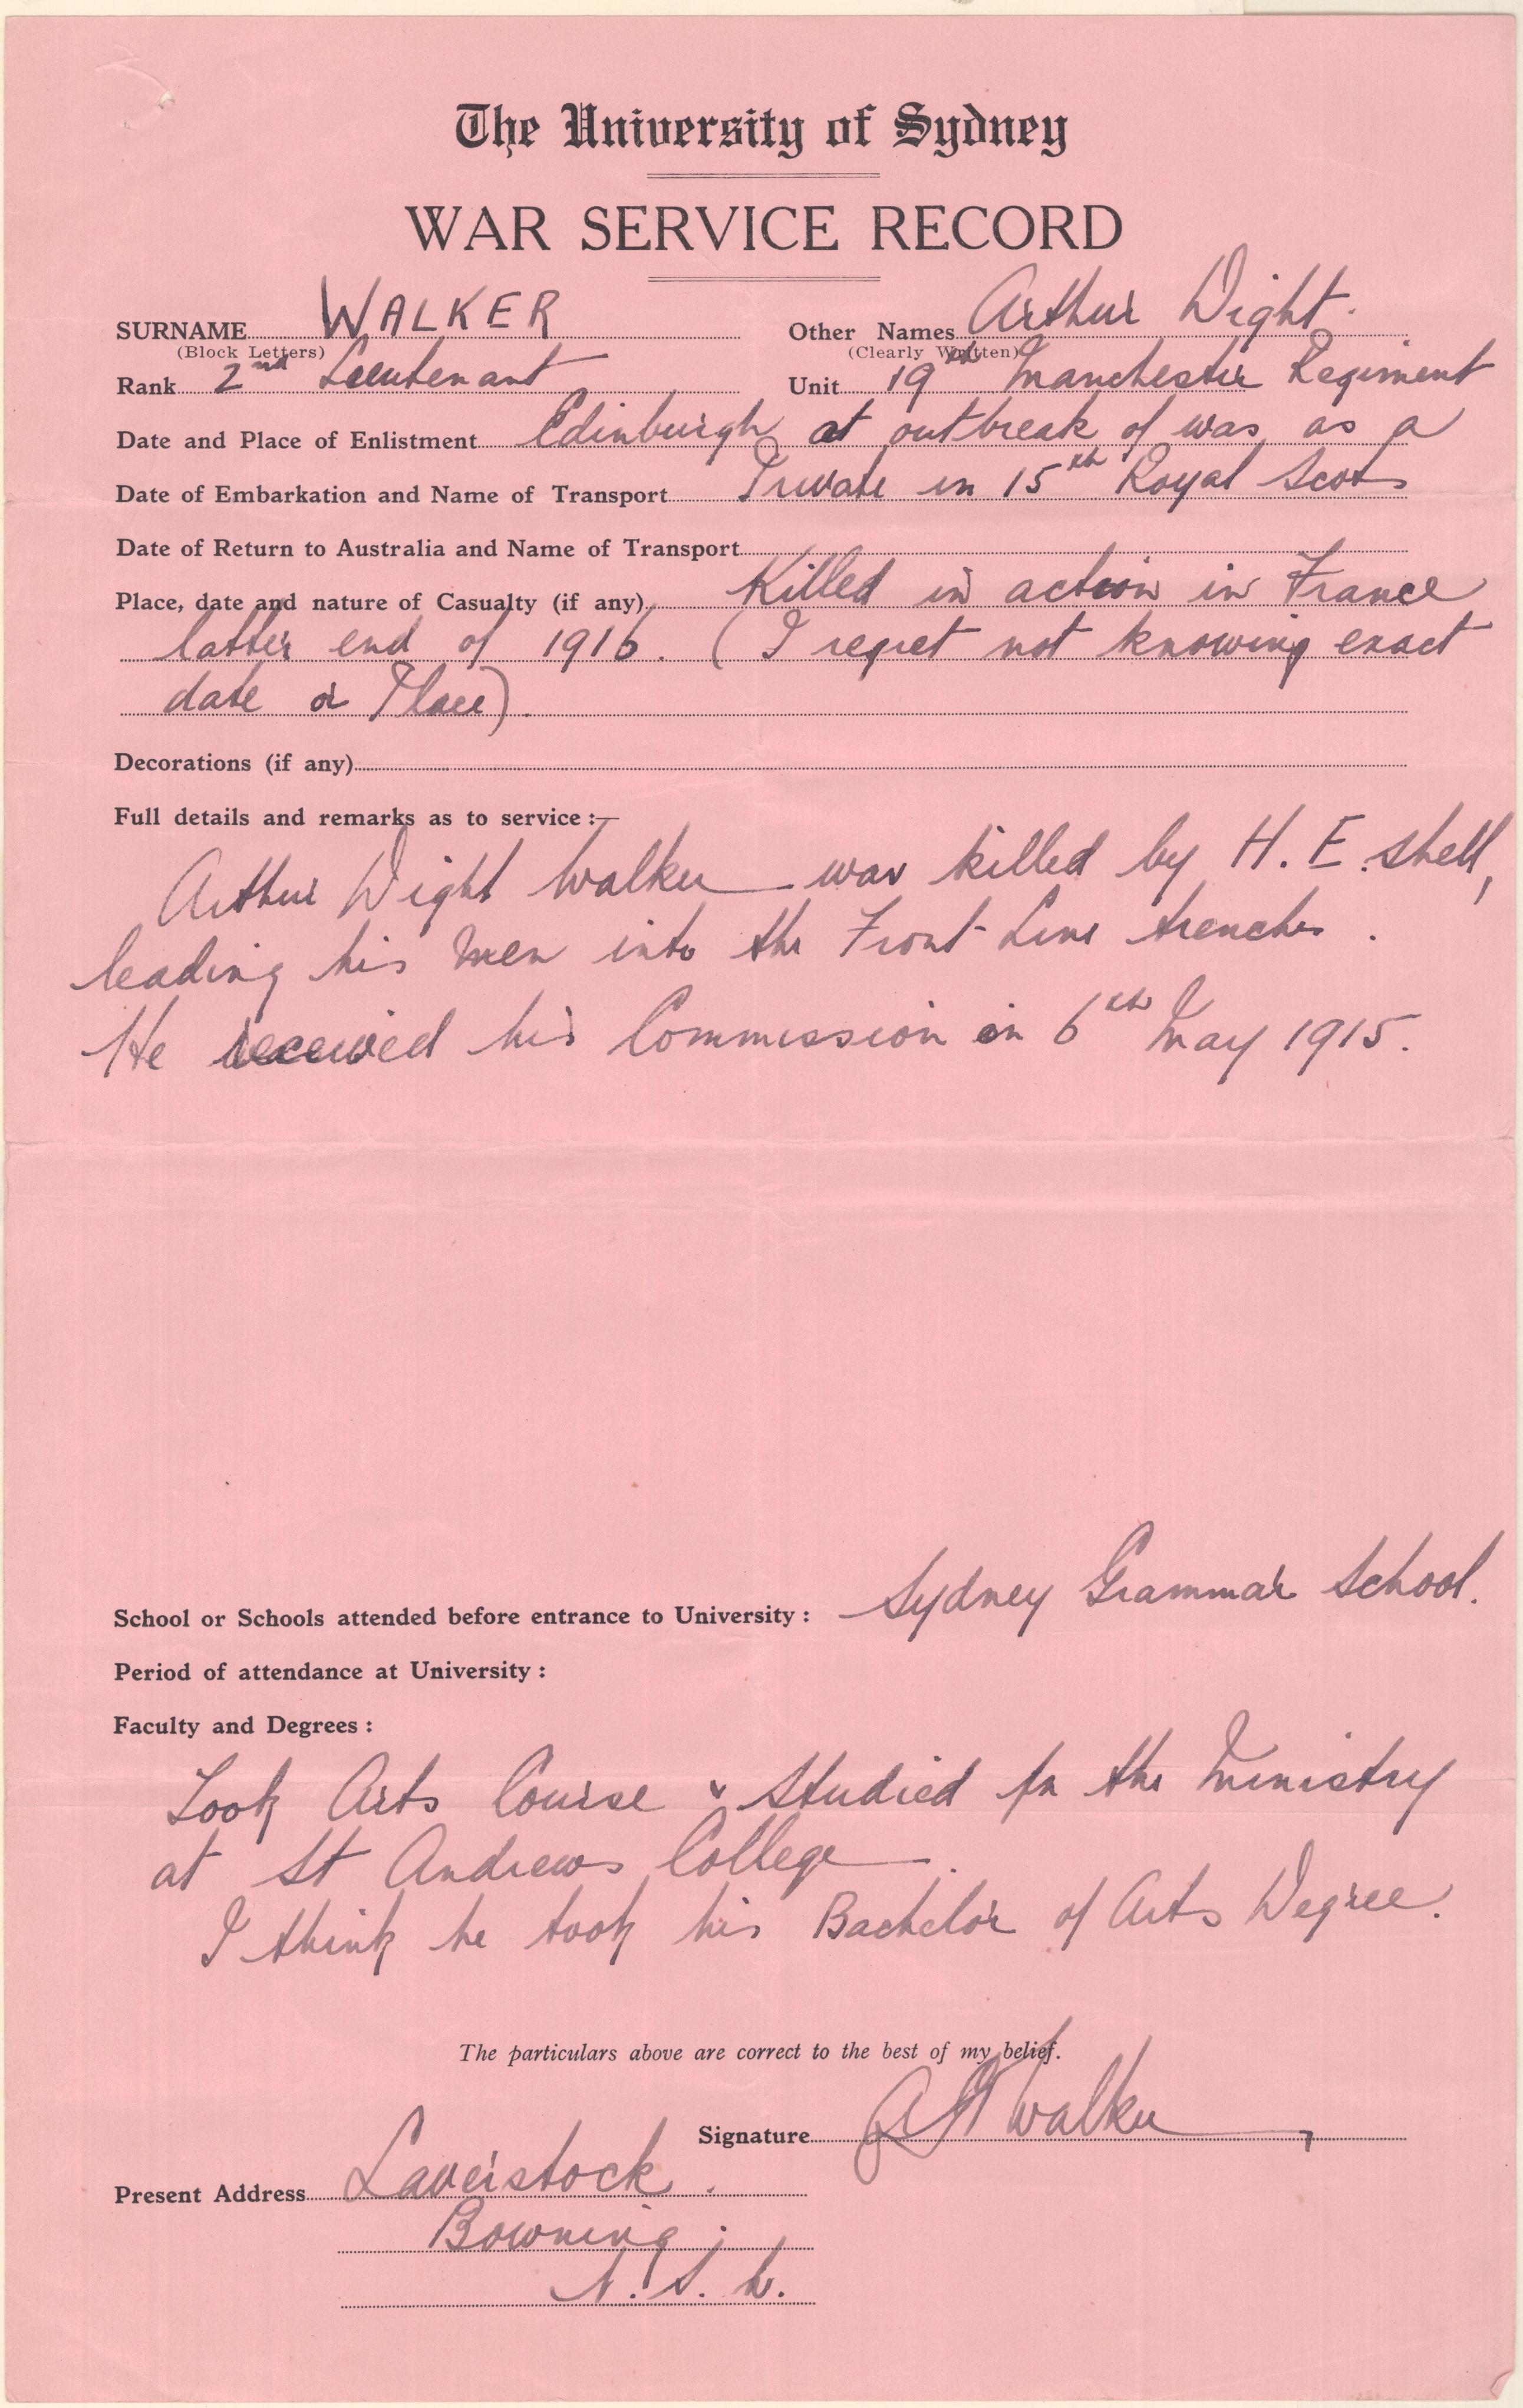 The University of Sydney
WAR SERVICE RECORD
SURNAME WALKER Other Names Arthur Dight.
(Block Letters) (Clearly Written)
Rank 2nd Lieutenant Unit 19th Manchester Regiment
Date and Place of Enlistment Edinburgh at outbreak of war as a
Date of Embarkation and Name of Transport Private in 15th Royal Scots
Date of Return to Australia and Name of Transport
Place, date and nature of Casualty (if any) Killed in action in France
latter end of 1916. (I regret not knowing exact
date or Place).
Decorations (if any)
Full details and remarks as to service :—
Arthur Dight Walker was killed by H. E. shell,
leading his men into the Front Line trenches.
He received his Commission on 6th May 1915.
School or Schools attended before entrance to University : Sydney Grammar School.
Period of attendance at University :
Faculty and Degrees :
Took Arts Course & studied for the Ministry
at St Andrews College.
I think he took his Bachelor of Arts Degree.
The particulars above are correct to the best of my belief.
Signature Walker
Present Address Laverstock.
Bowning.
N. S. W.